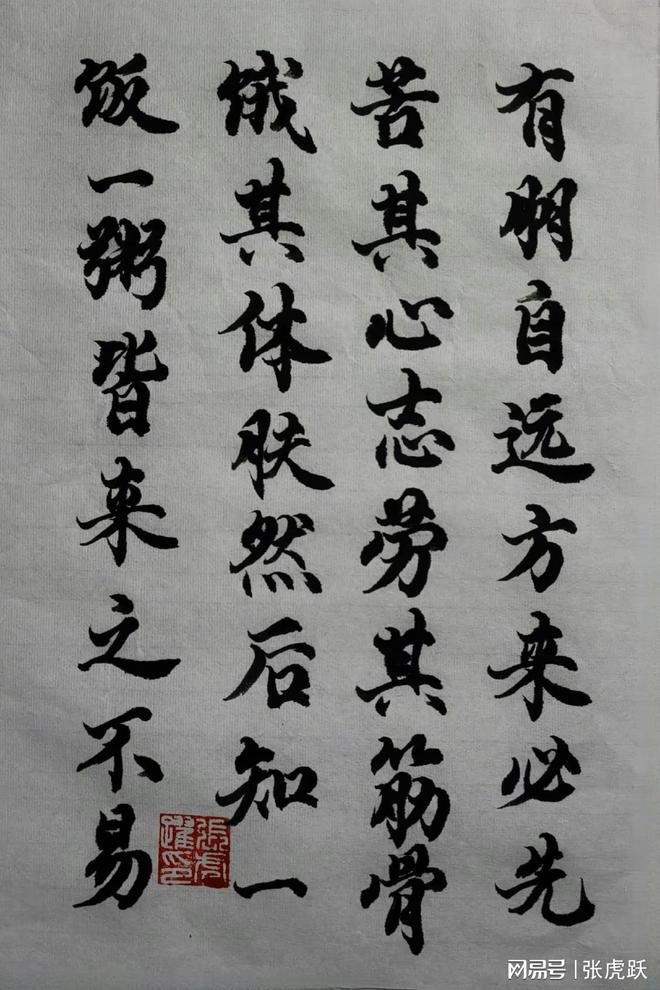 有朋自远方来必先
苦其心志劳其筋骨
饿其体肤然后知一
饭一粥皆来之不易
張虎
躍印
网易号 | 张虎跃